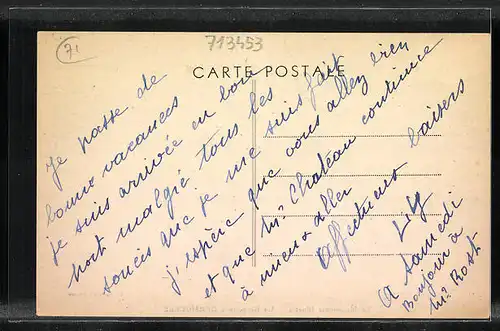 71
713453
CARTE POSTALE
Je passe de
bonnes vacances
je suis arrivée en bon
port malgré tous les
soucis que je me suis fait
j'espère que vous allez bien
et que Mr Chateau continue
à mieux aller
Affectueux baisers
Lily
A samedi
Bonjour à
Mr Rost